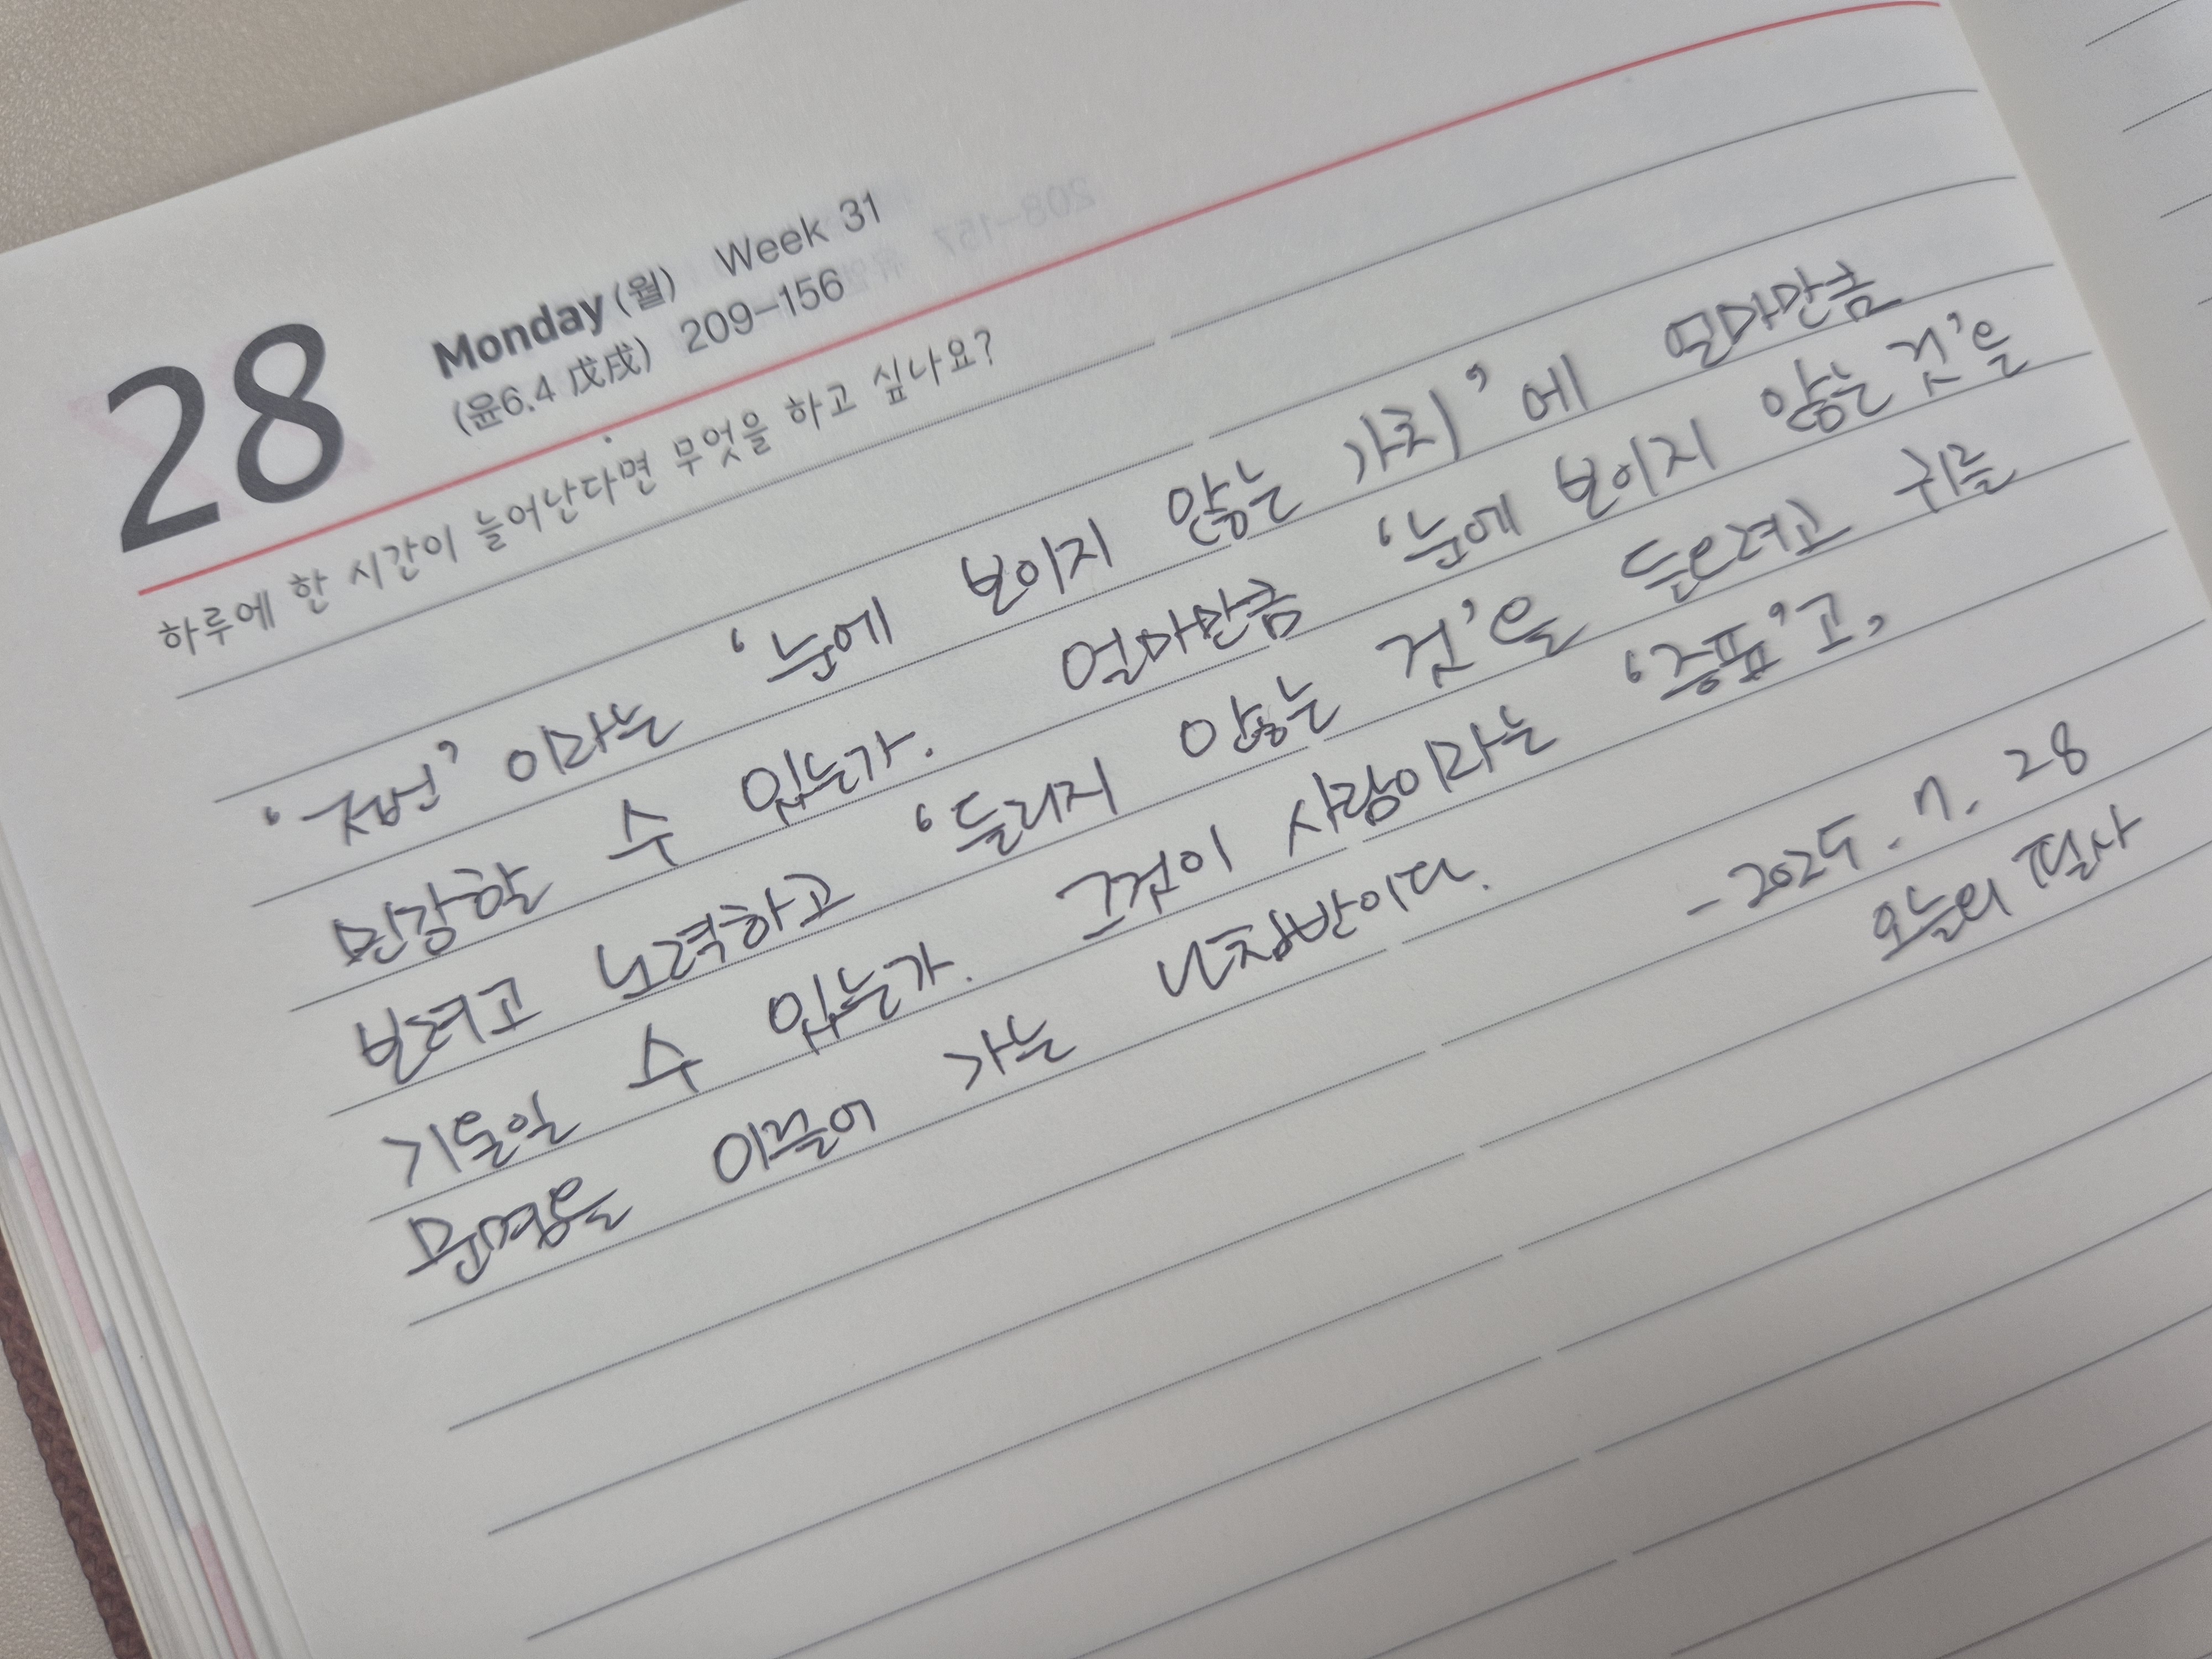 28
Monday (월) Week 31
(윤6.4 戊戌) 209-156
하루에 한 시간이 늘어난다면 무엇을 하고 싶나요?
이라는 '눈에 보이지 않는 가치'에 얼마만큼
민감할 수 있는가. 얼마만큼 '눈에 보이지 않는 것'을
보려고 노력하고 '들리지 않는 것'을 들으려고 귀를
기울일 수 있는가. 그것이 사랑이라는 '증표'고,
운명을 이끌어 가는 나침반이다.
- 2025. 7. 28
오늘의 필사